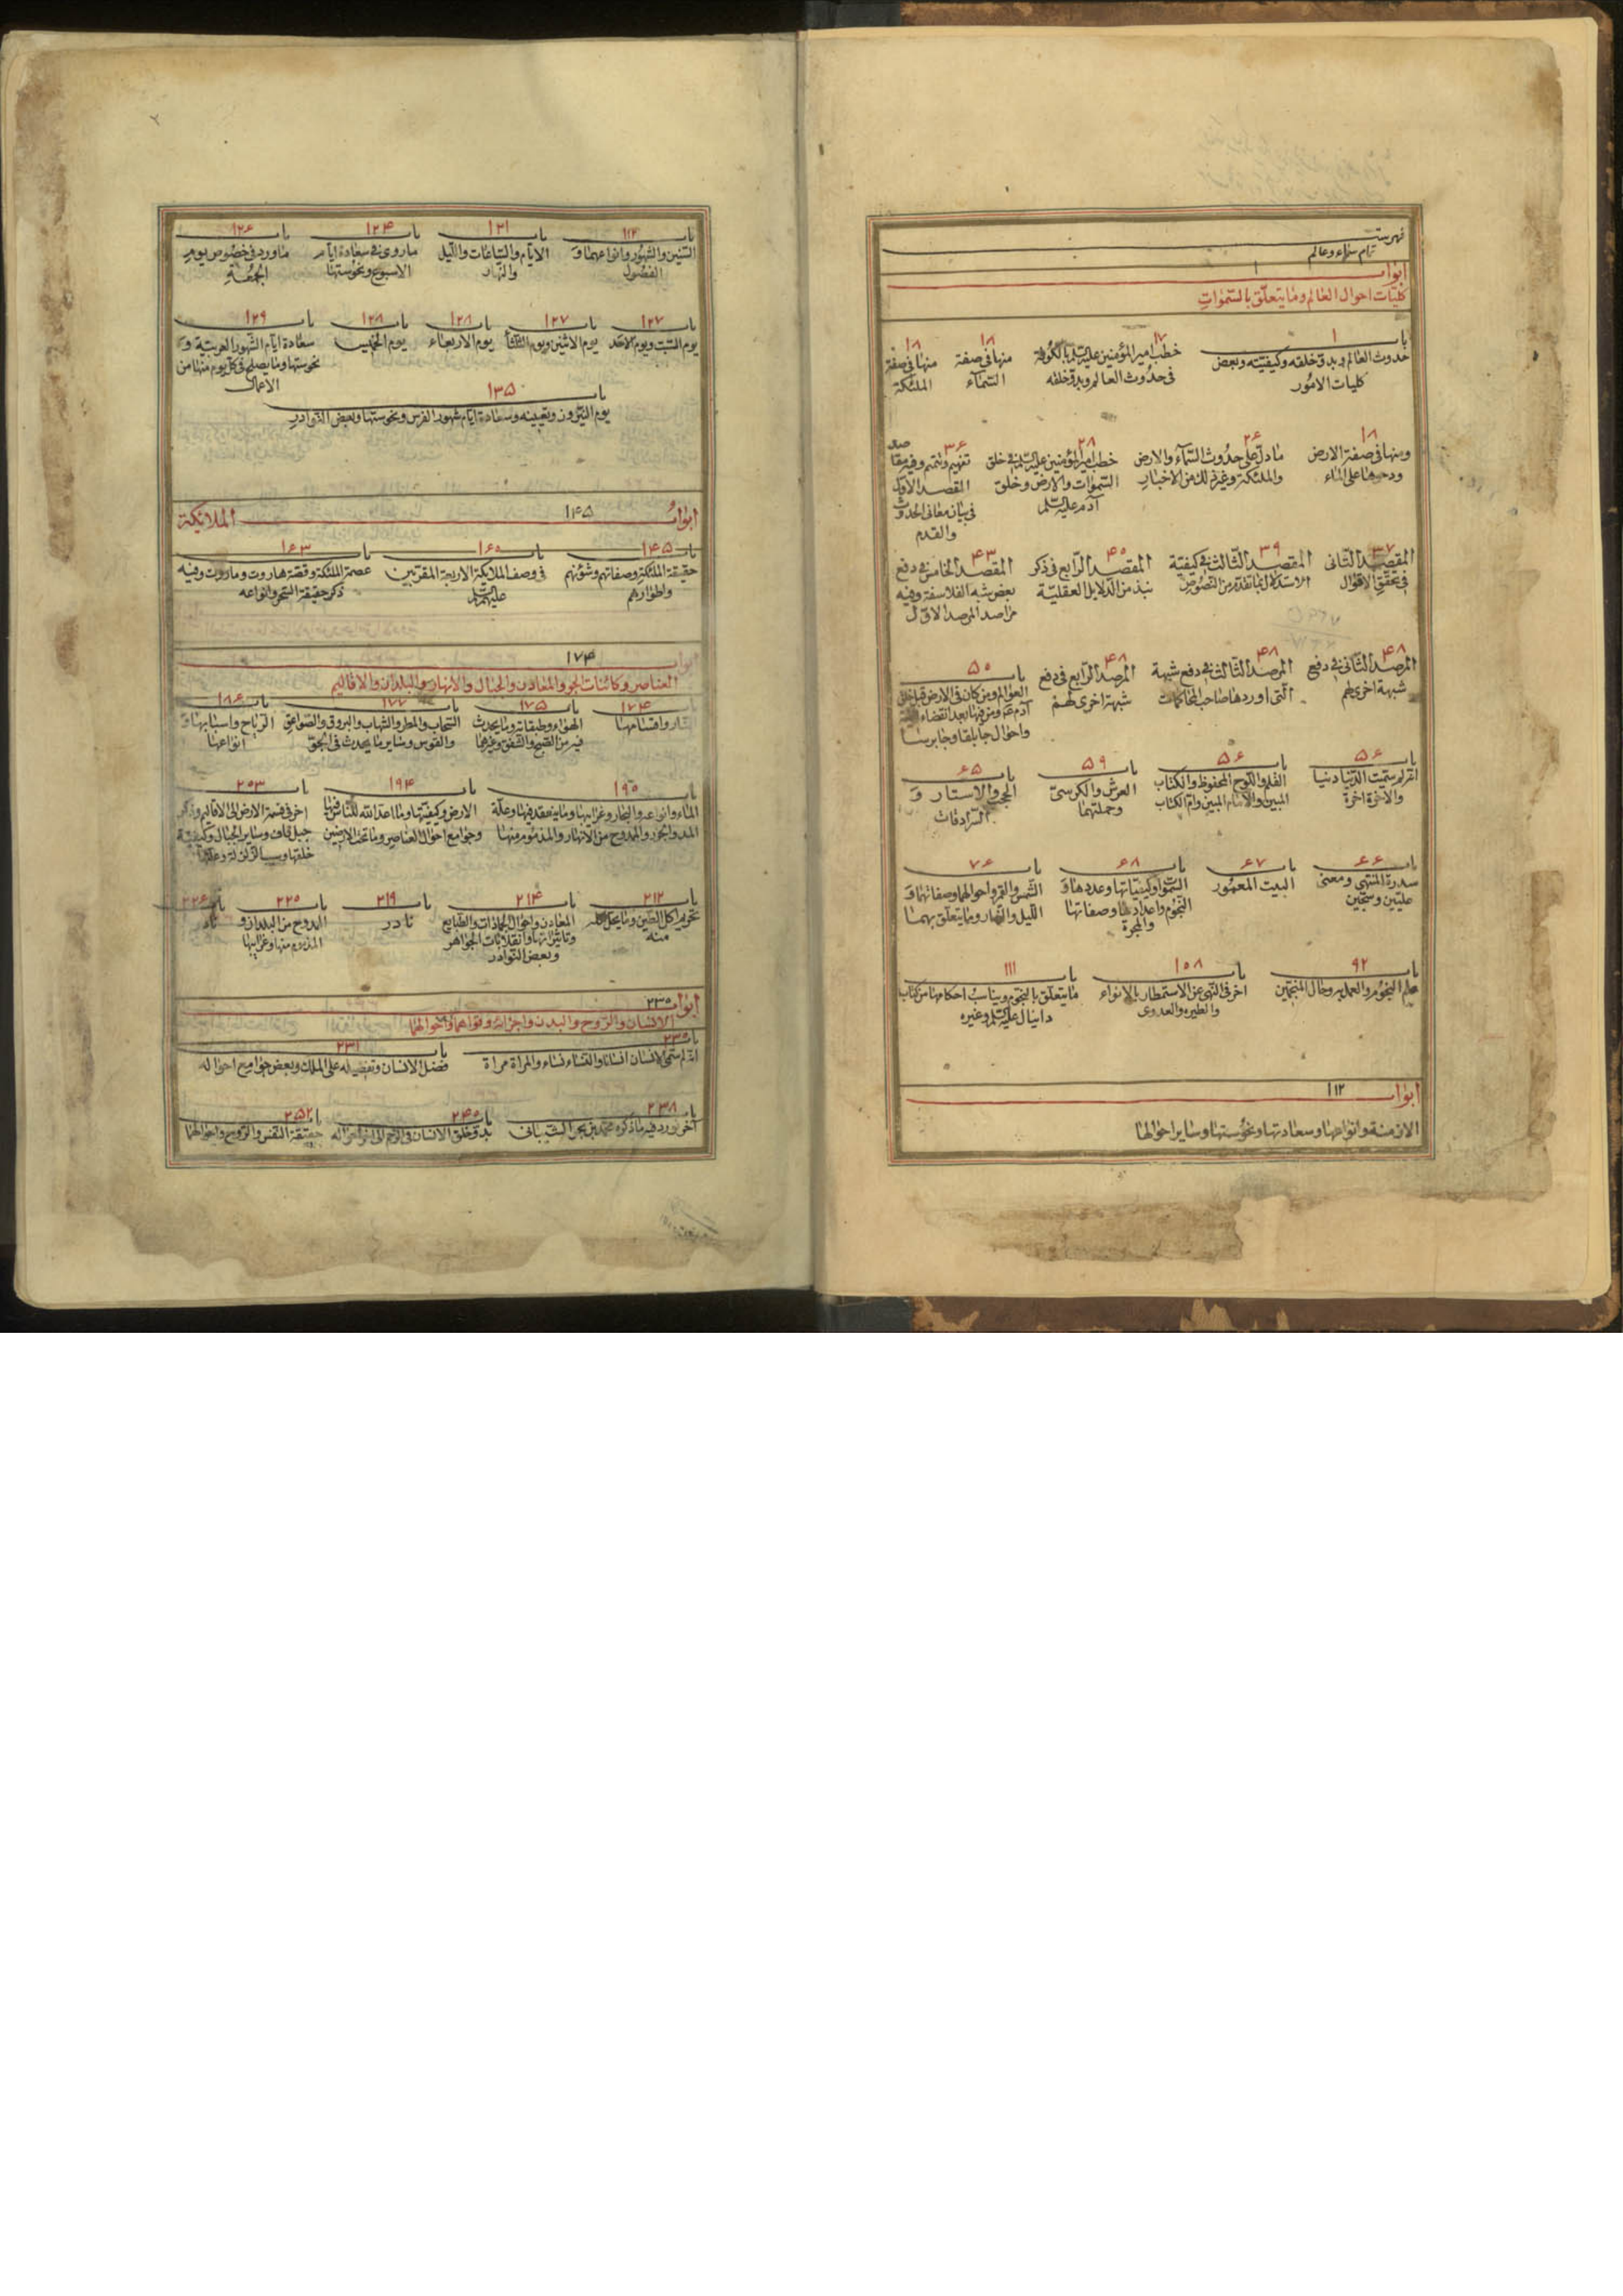 فهرست
تمام سماء وعالم
ابواب ١
كليات احوال العالم وما يتعلق بالسموات
باب ١
حدوث العالم وبدو خلقه وكيفيته وبعض
كليات الامور
١٧
خطب امير المؤمنين عليه السلم بالكوفة
في حدوث العالم وبدو خلقه
١٨
منها في صفة
السماء
١٨
منها في صفة
الملئكة
١٨
ومنها في صفة الارض
ودحوها على الماء
٢۶
ما دل على حدوث السماء والارض
والملئكة وغير ذلك من الاخبار
٢٨
خطب امير المؤمنين عليه السلم في خلق
السموات والارض وخلق
آدم عليه السلم
٣۶
تفهيم وتتميم وفيه مقاصد
المقصد الاول
في بيان معاني الحدوث
والقدم
٣٧
المقصد الثاني
في تحقيق الاقوال
٣٩
المقصد الثالث في كيفية
الاستدلال بما تقدم من النصوص
۴٥
المقصد الرابع في ذكر
نبذ من الدلايل العقلية
۴٣
المقصد الخامس في دفع
بعض شبه الفلاسفة وفيه
مراصد المرصد الاول
۴٨
المرصد الثاني في دفع
شبهة اخرى لهم
۴٨
المرصد الثالث في دفع شبهة
التي اوردها صاحب المحاكمات
۴٨
المرصد الرابع في دفع
شبهة اخرى لهم
باب ۵٥
العوالم ومن كان في الارض قبل خلق
آدم ع ومن فيها بعد انقضاء القيمة
واحوال جابلقا وجابرسا
باب ۵۶
انه لم سميت الدنيا دنيا
والآخرة آخرة
باب ۵۶
القلم واللوح المحفوظ والكتاب
المبين والامام المبين وام الكتاب
باب ۵٩
العرش والكرسي
وحملتهما
باب ۶۵
الحجب والاستار و
السرادقات
باب ۶۶
سدرة المنتهى ومعنى
عليين وسجين
باب ۶٧
البيت المعمور
باب ۶٨
السموات وكيفياتها وعددها و
النجوم واعدادها وصفاتها
والمجرة
باب ٧۶
الشمس والقمر واحوالهما وصفاتهما و
الليل والنهار وما يتعلق بهما
باب ٩٢
علم النجوم والعمل به وحال المنجمين
باب ١٥٨
اخر في النهي عن الاستمطار بالانواء
والطيرة والعدوى
باب ١١١
ما يتعلق بالنجوم ويناسب احكامها من كتاب
دانيال عليه السلم وغيره
ابواب ١١٢
الازمنة وانواعها وسعادتها ونحوستها وساير احوالها
٢
باب ١١٢
السنين والشهور وانواعهما و
الفصول
باب ١٢١
الايام والساعات والليل
والنهار
باب ١٢۴
ما روى في سعادة ايام
الاسبوع ونحوستها
باب ١٢۶
ما ورد في خصوص يوم
الجمعة
باب ١٢٧
يوم السبت ويوم الاحد
باب ١٢٧
يوم الاثنين ويوم الثلثا
باب ١٢٨
يوم الاربعاء
باب ١٢٨
يوم الخميس
باب ١٢٩
سعادة ايام الشهور العربية و
نحوستها وما يصلح في كل يوم منها من
الاعمال
باب ١٣۵
يوم النيروز وتعيينه وسعادة ايام شهور الفرس ونحوستها وبعض النوادر
ابواب ١۴۵ الملايكة
باب ١۴۵
حقيقة الملئكة وصفاتهم وشؤنهم
واطوارهم
باب ١۶٥
في وصف الملايكة الاربعة المقربين
عليهم السلم
باب ١۶٣
عصمة الملئكة وقصة هاروت وماروت وفيه
ذكر حقيقة السحر وانواعه
ابواب ١٧۴
العناصر وكائنات الجو والمعادن والجبال والانهار والبلدان والاقاليم
باب ١٧۴
النار واقسامها
باب ١٧۵
الهواء وطبقاته وما يحدث
فيه من الصبح والشفق وغيرهما
باب ١٧٧
السحاب والمطر والشهاب والبروق والصواعق
والقوس وساير ما يحدث في الجو
باب ١٨۶
الرياح واسبابها و
انواعها
باب ١٩٥
الماء وانواعه والبحار وغرايبها وما ينعقد فيها وعلة
المد والجزر والممدوح من الانهار والمذموم منها
باب ١٩۴
الارض وكيفيتها وما اعد الله للناس فيها
وجوامع احوال العناصر وما تحت الارضين
باب ٢٥٣
اخر في قسمة الارض الى الاقاليم وذكر
جبل قاف وساير الجبال وكيفية
خلقها وسبب الزلزلة وعلتها
باب ٢١٢
تحريم اكل الطين وما يحل اكله
منه
باب ٢١۴
المعادن واحوال الجمادات والطبايع
وتاثيراتها وانقلابات الجواهر
وبعض النوادر
باب ٢١٩
نادر
باب ٢٢٥
الممدوح من البلدان و
المذموم منها وغرايبها
باب ٢٢۶
نادر
ابواب ٢٣٥
الانسان والروح والبدن واجزائه وقواهما واحوالهما
باب ٢٣٥
انه لم سمي الانسان انسانا والنساء نساء والمراة مراة
باب ٢٣١
فضل الانسان وتفضيله على الملك وبعض جوامع احواله
باب ٢٣٨
آخر نورد فيه ما ذكره محمد بن بحر الشيباني
باب ٢۴٥
بدو خلق الانسان في الرحم الى اخر احواله
باب ٢۵٢
حقيقة النفس والروح واحوالهما